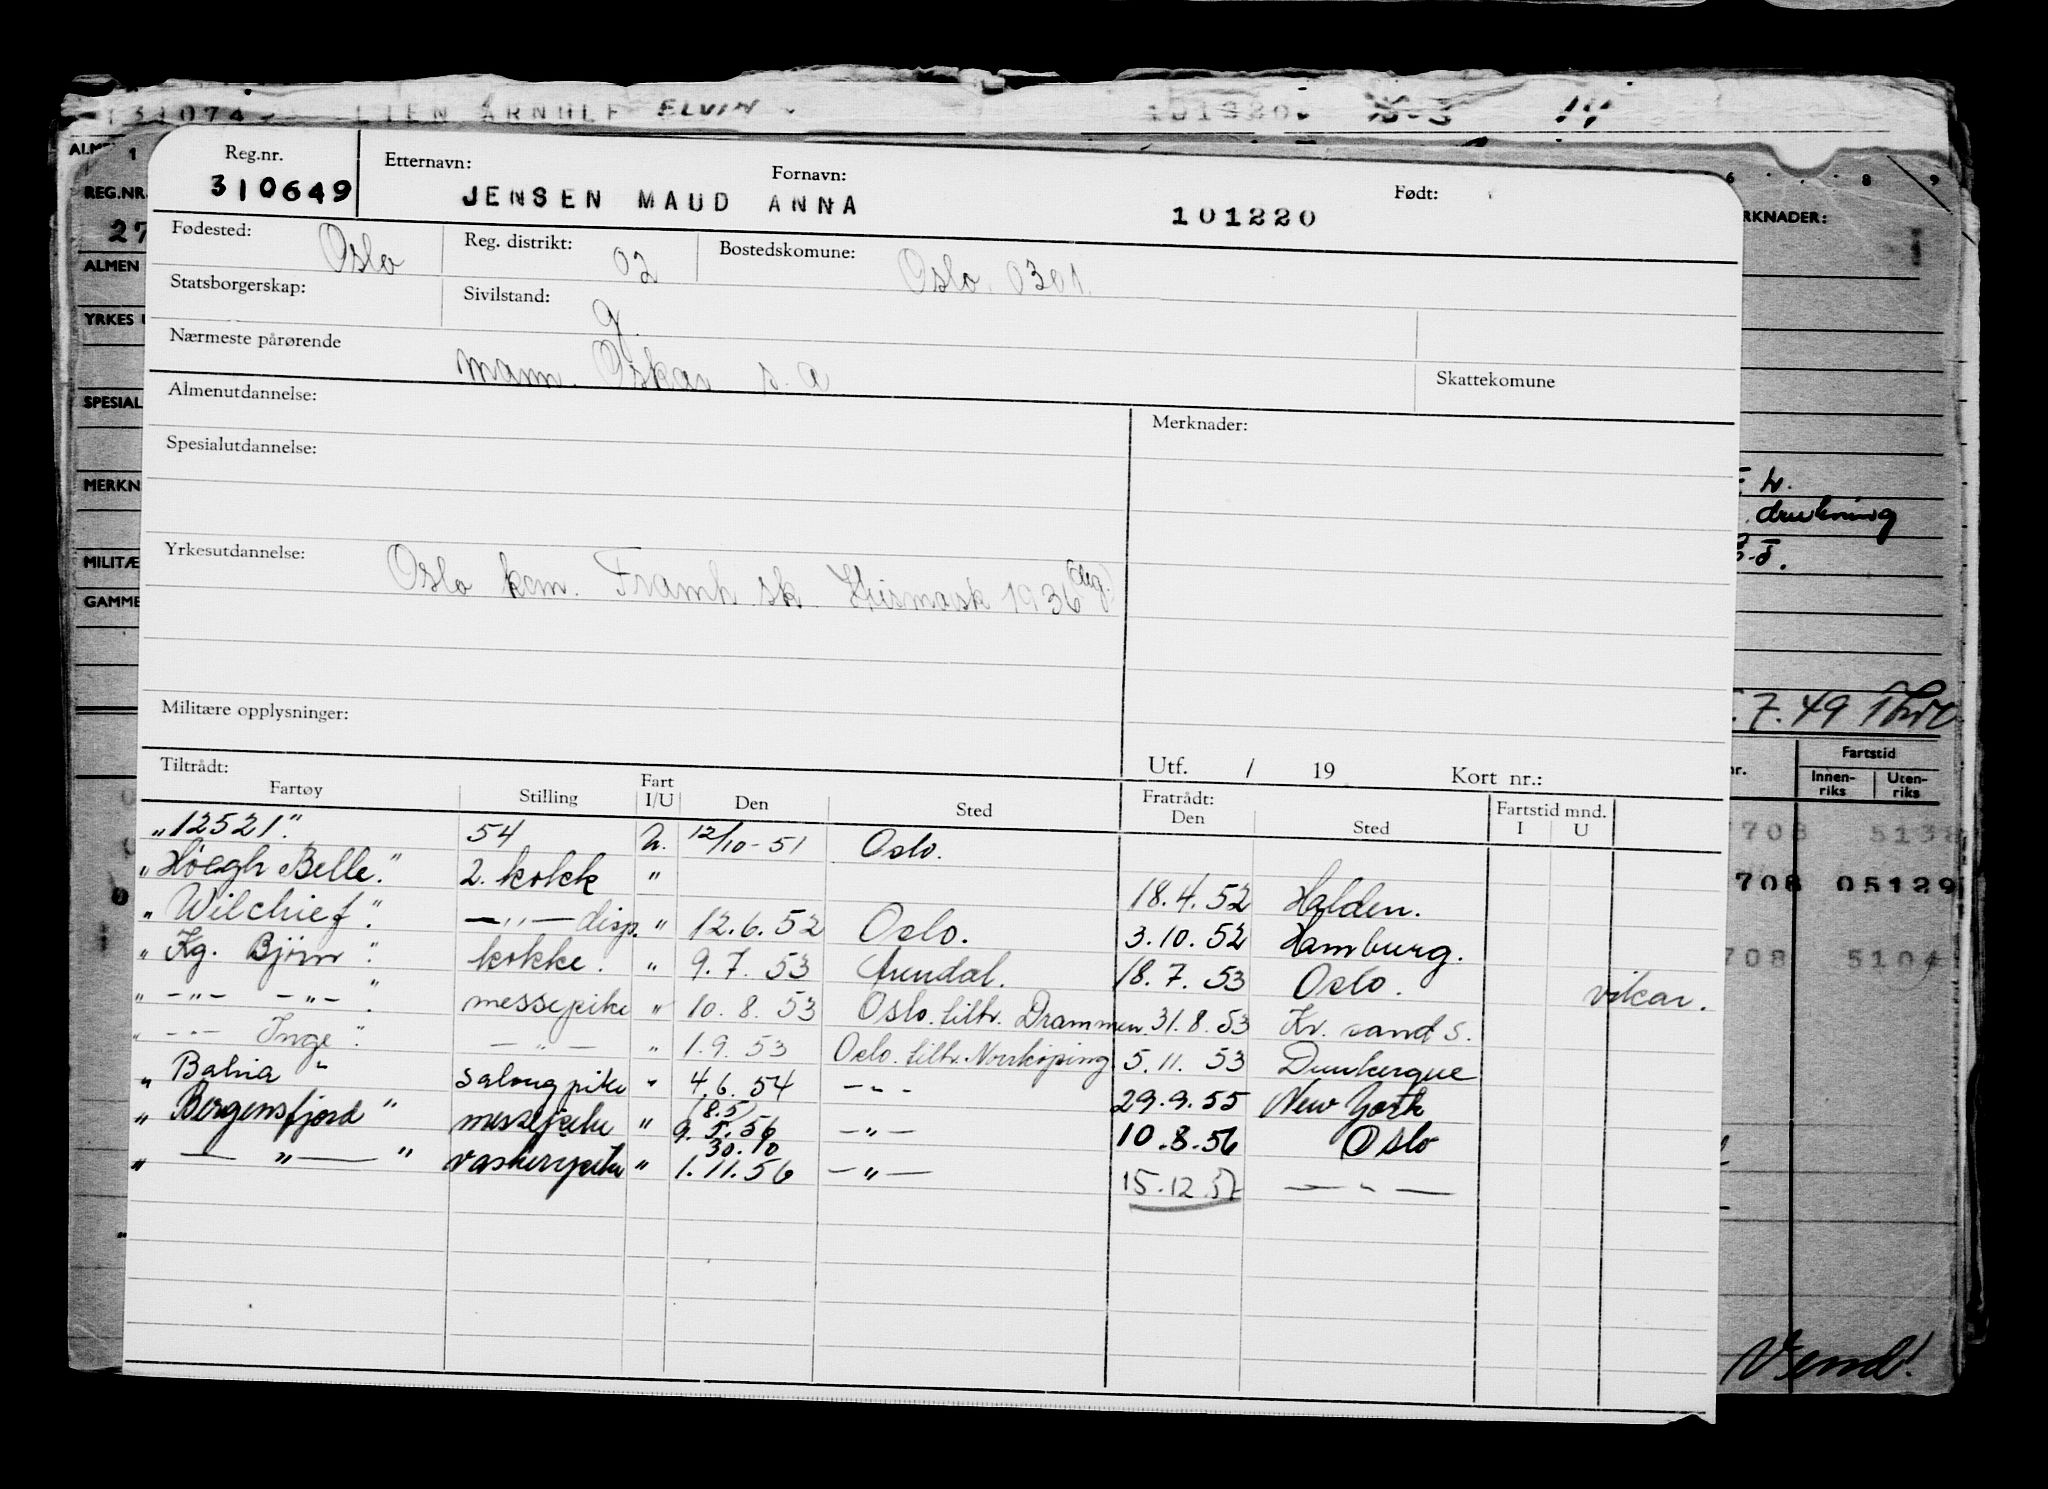 LIEN ARNULF ELVIN 101220
Reg.nr. Etternavn: Fornavn: Født:
310649 JENSEN MAUD ANNA 101220
Fødested: Oslo Reg. distrikt: 02 Bostedskomune: Oslo. 0301.
Statsborgerskap: Sivilstand: g.
Nærmeste pårørende mann. Oskar s. a Skattekomune
Almenutdannelse: Merknader:
Spesialutdannelse:
Yrkesutdannelse: Oslo kom. Framh. sk. Husmask 1936
Militære opplysninger:
Utf. / 19 Kort nr.:
Tiltrådt: Fratrådt: Fartstid mnd.
Fartøy Stilling Fart I/U Den Sted Den Sted I U
"12521". 54 U. 12/10-51 Oslo.
"Høegh Belle". 2. kokk " 18.4.52 Halden.
"Wilchief". —"— disp. " 12.6.52 Oslo. 3.10.52 Hamburg.
"Kg. Bjørn". kokke. " 9.7.53 Arendal. 18.7.53 Oslo. vikar.
" —"— —"— ". messepike " 10.8.53 Oslo. tiltr. Drammen 31.8.53 Kr. sand S.
" —"— Inge". —"— " 1.9.53 Oslo. tiltr. Norrköping 5.11.53 Dunkerque
" Balvia " salongpike " 4.6.54 —"— 29.9.55 New York
(8.5)
" Bergensfjord " messepike " 9.5.56 —"— 10.8.56 Oslo
30.10
" —"— " vaskeripike " 1.11.56 —"— 15.12.57 —"—
REG.NR.
27
ALMEN
YRKES
SPESIAL
MERKN
MILITÆ
GAMME
RKNADER:
7.49
Fartstid
Innen-riks Uten-riks
708 5138
708 05129
708 5104
Vend!